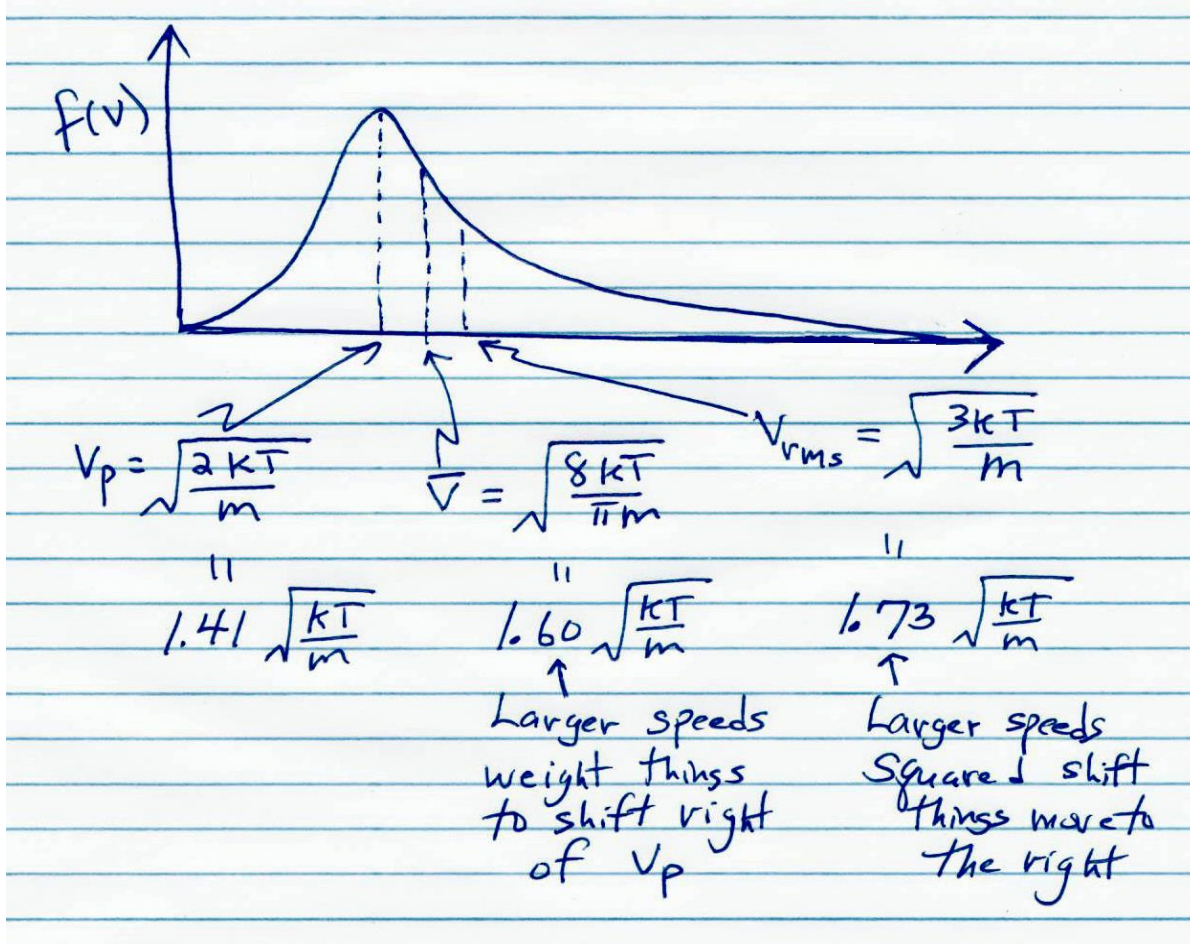 f(v)
Vp = √(2kT/m)
V̅ = √(8kT/πm)
Vrms = √(3kT/m)
= 1.41 √(kT/m)
= 1.60 √(kT/m)
= 1.73 √(kT/m)
↑
Larger speeds
weight things
to shift right
of Vp
↑
Larger speeds
Squared shift
things more to
the right